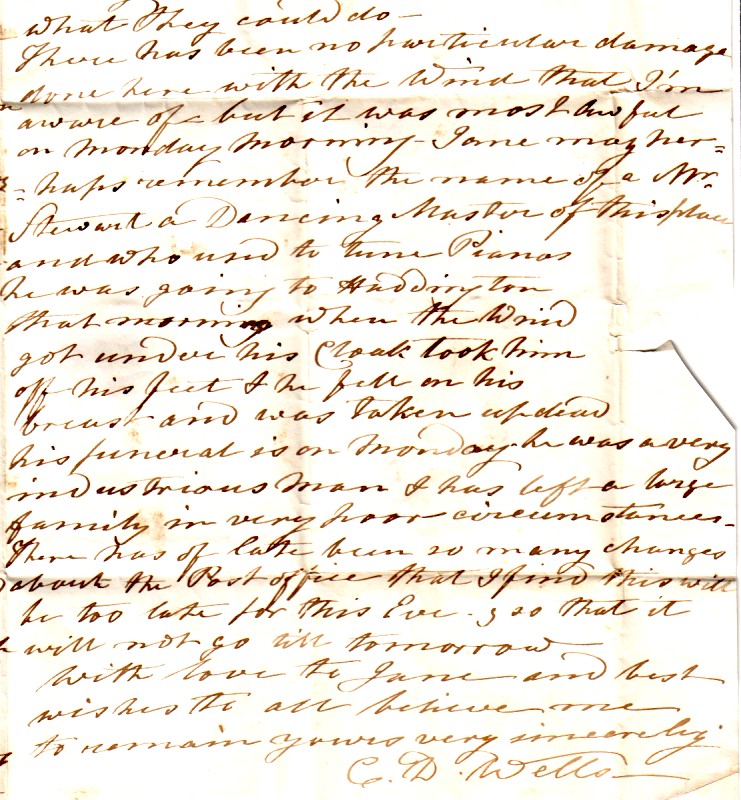 what they could do -
There has been no particular damage
done here with the Wind that I'm
aware of - but it was most awful
on Monday Morning - Jane may per=
=haps remember the name of a Mr.
Stewart a Dancing Master of this place
and who used to tune Pianos
he was going to Haddington
that morning when the Wind
got under his Cloak took him
off his feet & he fell on his
breast and was taken up dead
his funeral is on Monday - he was a very
industrious Man & has left a large
family in very poor circumstances -
There has of late been so many changes
about the Post office that I find this will
be too late for this Eve.g so that it
will not go till tomorrow
with love to Jane and best
wishes to all believe me
to remain yours very sincerely
C. D. Wells